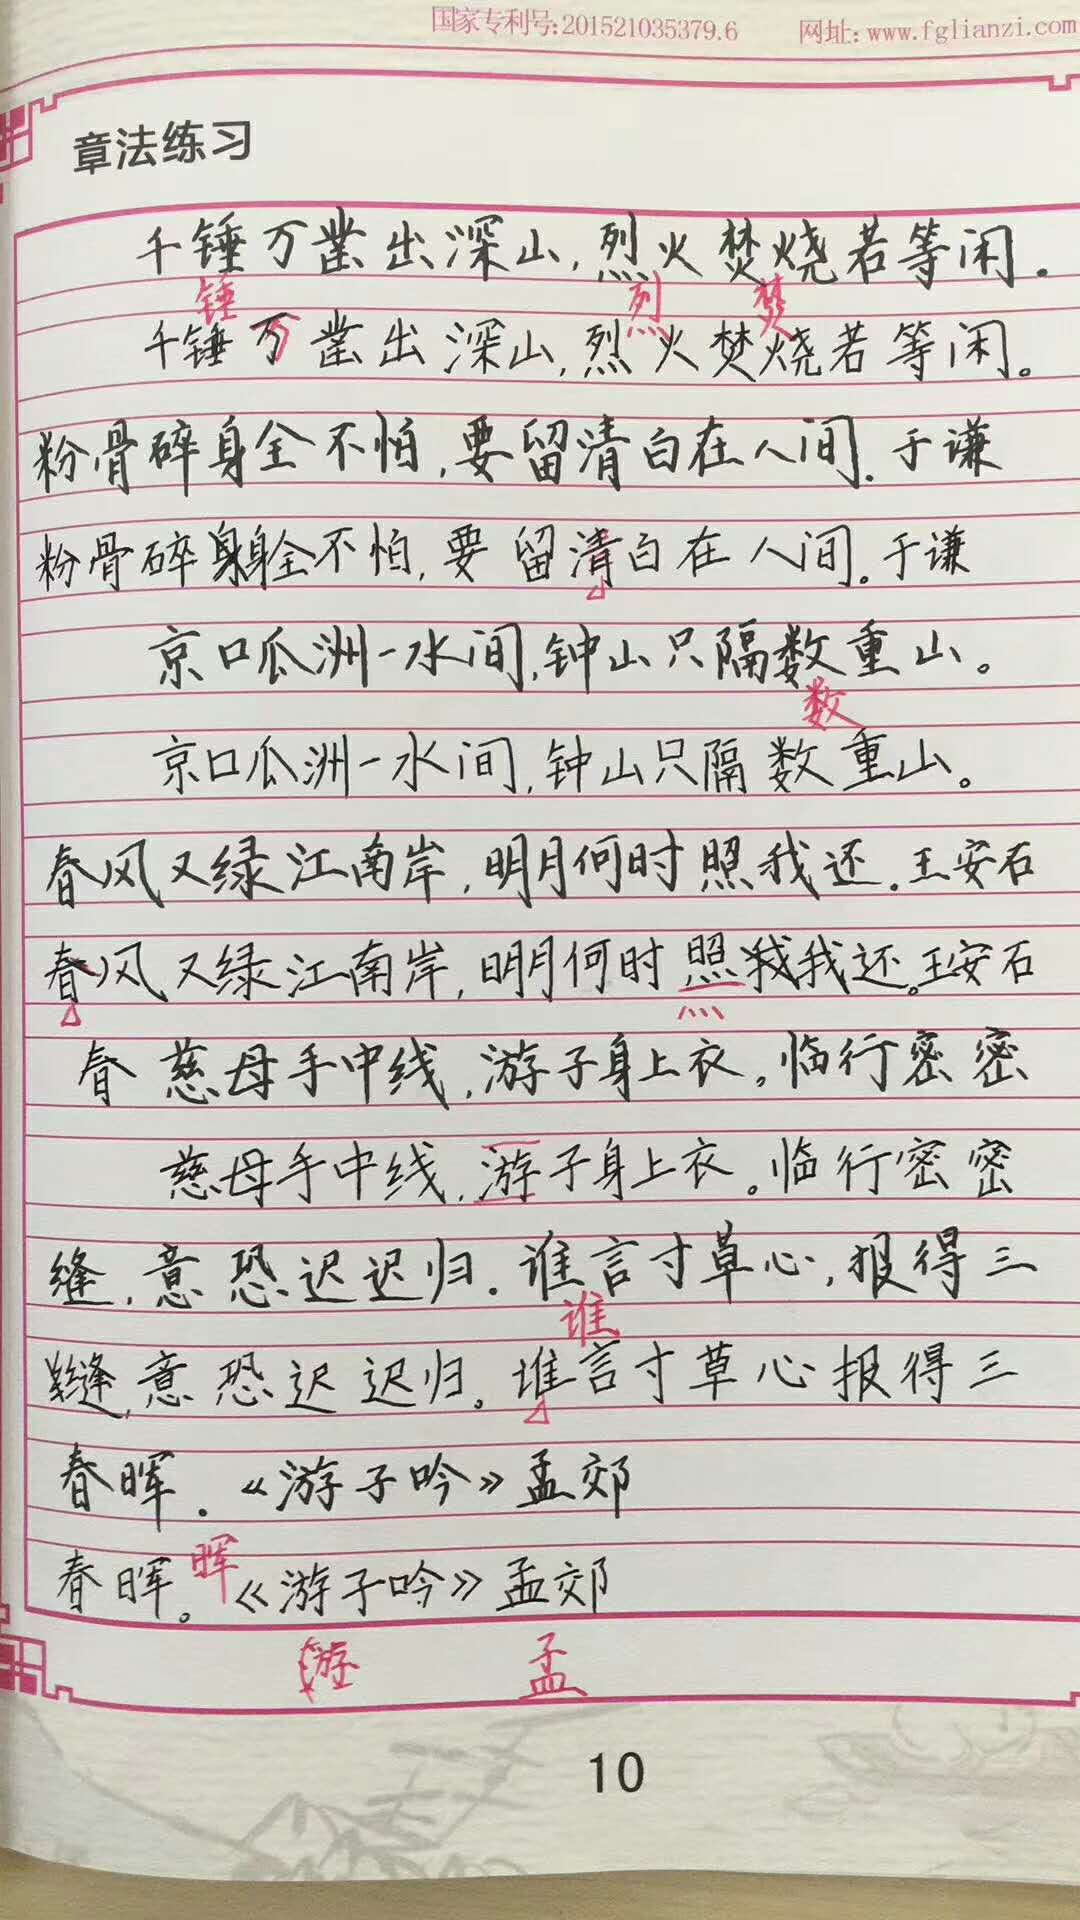 国家专利号:201521035379.6 网址: www.fglianzi.com
章法练习
千锤万凿出深山,烈火焚烧若等闲.
锤 烈 焚
千锤万凿出深山,烈火焚烧若等闲。
粉骨碎身全不怕,要留清白在人间.于谦
粉骨碎身身全不怕,要留清白在人间。于谦
京口瓜洲一水间,钟山只隔数重山。
数
京口瓜洲一水间,钟山只隔数重山。
春风又绿江南岸,明月何时照我还.王安石
春风又绿江南岸,明月何时照我我还。王安石
春 慈母手中线,游子身上衣。临行密密
慈母手中线,游子身上衣。临行密密
缝,意恐迟迟归.谁言寸草心,报得三
谁
缝,意恐迟迟归。谁言寸草心报得三
春晖.《游子吟》孟郊
晖
春晖。《游子吟》孟郊
游 孟
10